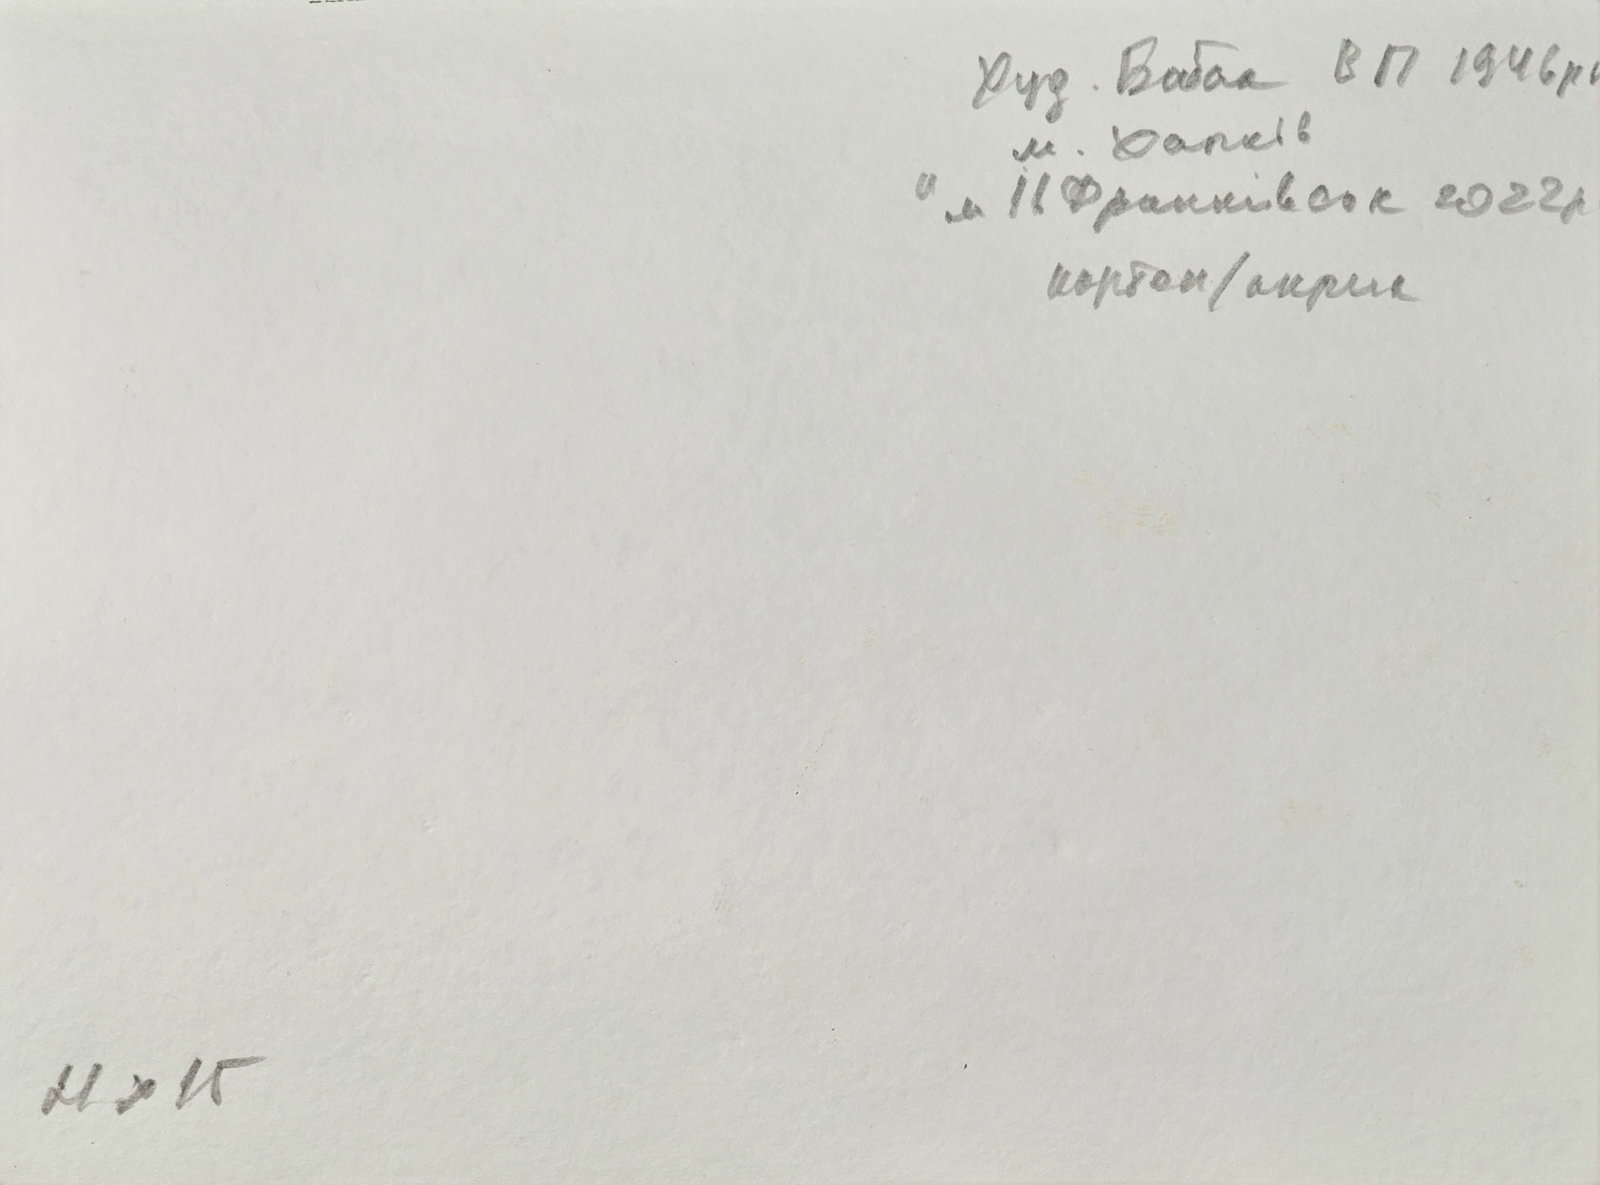 Худ. Бабак В П 1946рн
м. Харків
"м ІІ Франківськ 2022р
картон/акрил
21 х 15